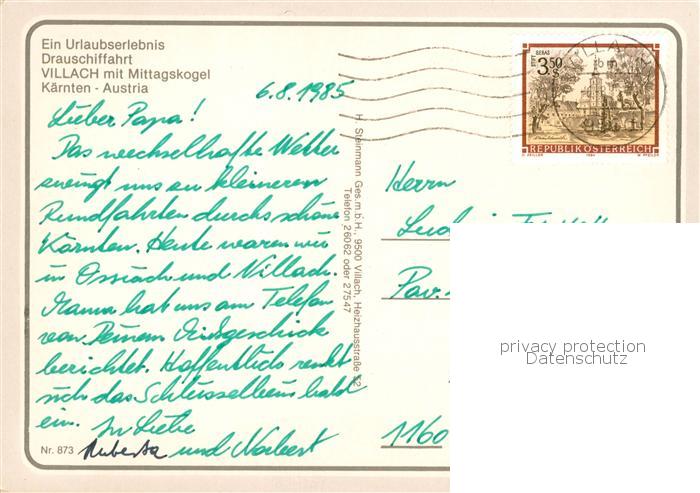 Ein Urlaubserlebnis
Drauschiffahrt
VILLACH mit Mittagskogel
Kärnten - Austria
6.8.1985
Lieber Papa!
Das wechselhafte Wetter
zwingt uns zu kleineren
Rundfahrten durchs schöne
Kärnten. Heute waren wir
in Ossiach und Villach.
Mama hat uns am Telefon
von Deinem Mißgeschick
berichtet. Hoffentlich renkt
sich das Schlüsselbein bald
ein. In Liebe
und Norbert
Nr. 873
H. Steinmann Ges.m.b.H., 9500 Villach, Heizhausstraße 52
Telefon 26062 oder 27547
SERAS
3.50
S
REPUBLIK ÖSTERREICH
1984
W. PFEILER
VILLACH
Herrn
Pav.
1160
privacy protection
Datenschutz